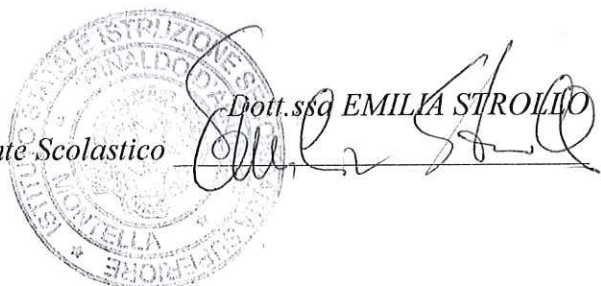 Dott.ssa EMILIA STROLLO
nte Scolastico
ISTITUTO STATALE ISTRUZIONE SECONDARIA SUPERIORE
RINALDO D'A
MONTELLA